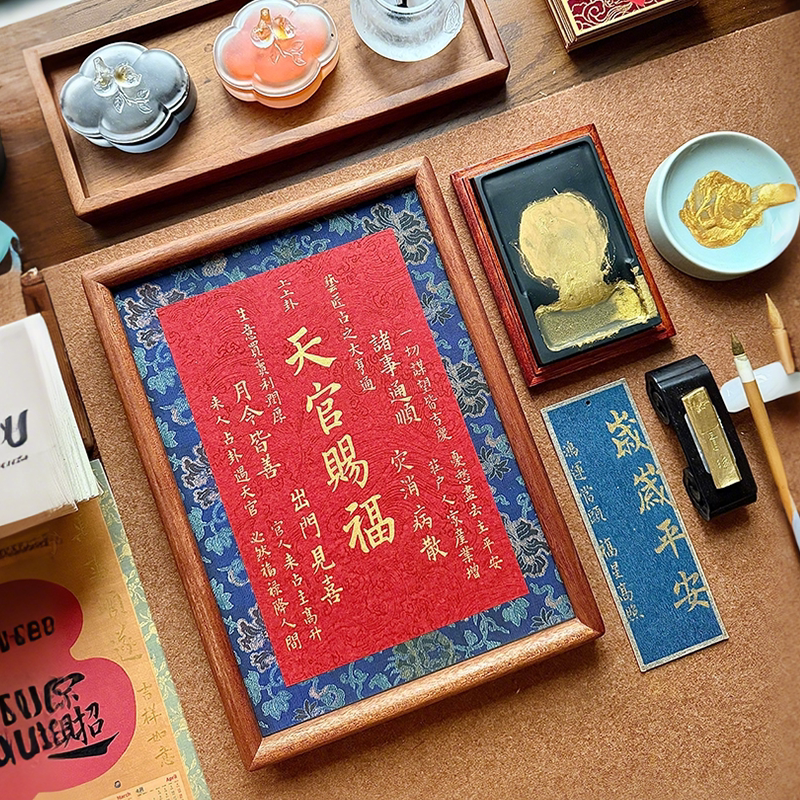 一切謀望皆吉慶
憂愁盡去主平安
諸事通順
災消病散
莊戶人家產業增
藝匠占之大亨通
上上卦
天官賜福
生意買賣利潤厚
出門見喜
官人來占主高升
月令皆善
來人占卦遇天官
必然福祿降人間
歲歲平安
鴻運當頭
福星高照
吉祥如意
招
March
April